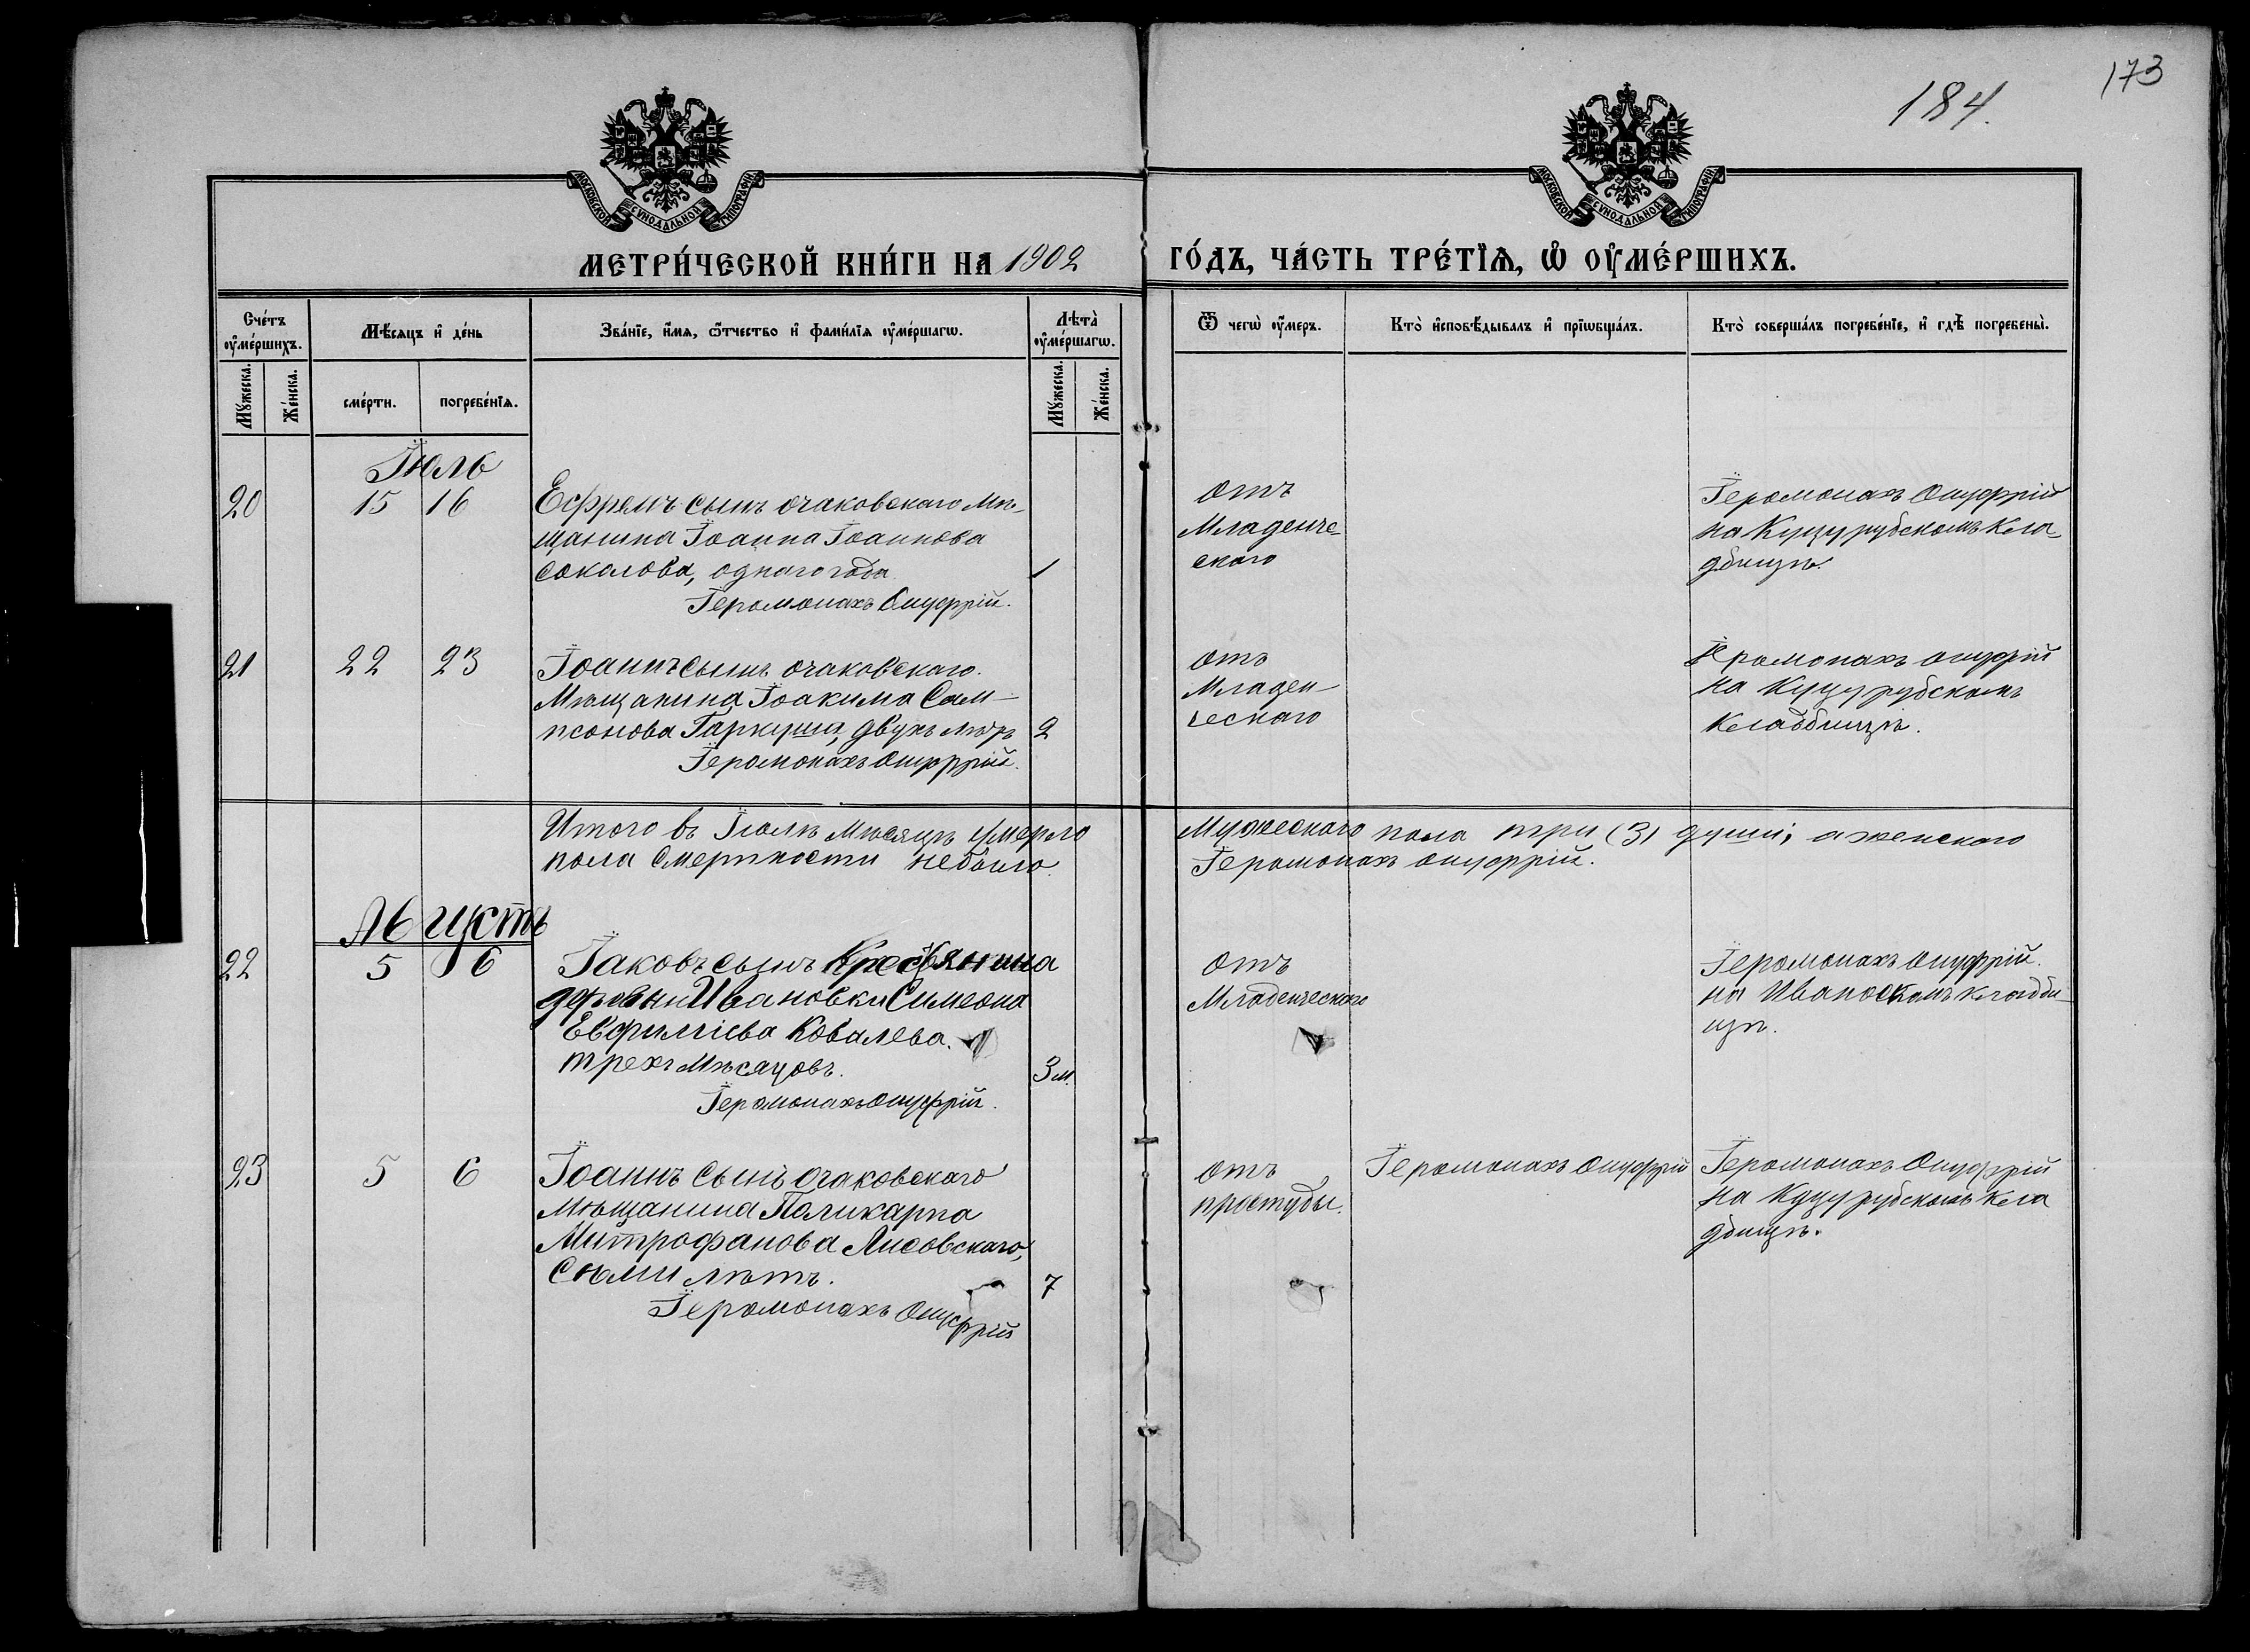 173
184.
МОСКОВСКОЙ СѴНОДАЛЬНОЙ ТИПОГРАФІИ
МОСКОВСКОЙ СѴНОДАЛЬНОЙ ТИПОГРАФІИ
МЕТРИ́ЧЕСКОЙ КНИ́ГИ НА 1902 ГО́ДЪ, ЧА́СТЬ ТРЕ́ТІѦ, Ѽ ОУ҆МЕ́РШИХЪ.
Сче́тъ оу҆ме́ршихъ.
Мѣ́сяцъ и҆ де́нь
Зва́нїе, и҆́мя, ѻ҆́тчество и҆ фами́лїя оу҆ме́ршагѡ.
Лѣта̀ оу҆ме́ршагѡ.
Ѿ чегѡ̀ оу҆́меръ.
Кто̀ и҆сповѣ́дывалъ и҆ прїѡбща́лъ.
Кто̀ соверша́лъ погребе́нїе, и҆ гдѣ̀ погребены̀.
Мꙋ́жеска.
Же́нска.
сме́рти.
погребе́нїя.
Мꙋ́жеска.
Же́нска.
Іюль
20 15 16 Ефремъ сынъ очаковскаго мѣ-
щанина Іоанна Іоаннова
Соколова, одного года 1
Іеромонахъ Онуфрій.
отъ
Младенче-
скаго
Іеромонахъ Онуфрій
на Куцурубскомъ кла-
дбищѣ.
21 22 23 Іоаннъ сынъ очаковскаго
Мѣщанина Іоакима Сам-
псонова Гаркуши, двухъ лѣтъ 2
Іеромонахъ Онуфрій.
отъ
Младен-
ческаго
Іеромонахъ Онуфрій
на Куцурубскомъ
кладбищѣ.
Итого въ Іюлѣ мѣсяцѣ умерло Мужескаго пола три (3) души, а женскаго
пола смертности небыло. Іеромонахъ Онуфрій.
Августъ
22 5 6 Іаковъ сынъ крестьянина
деревни Ивановки Симеона
Евфиміева Ковалева.
трехъ мѣсяцовъ. 3 м.
Іеромонахъ Онуфрій.
отъ
Младенческаго
Іеромонахъ Онуфрій.
на Иваноскомъ кладби-
щѣ.
23 5 6 Іоаннъ сынъ очаковскаго
Мѣщанина Поликарпа
Митрофанова Лисовскаго,
Сѣми лѣтъ. 7
Іеромонахъ Онуфрій
отъ
простуды.
Іеромонахъ Онуфрій
Іеромонахъ Онуфрій
на Куцурубскомъ кла
дбищѣ.